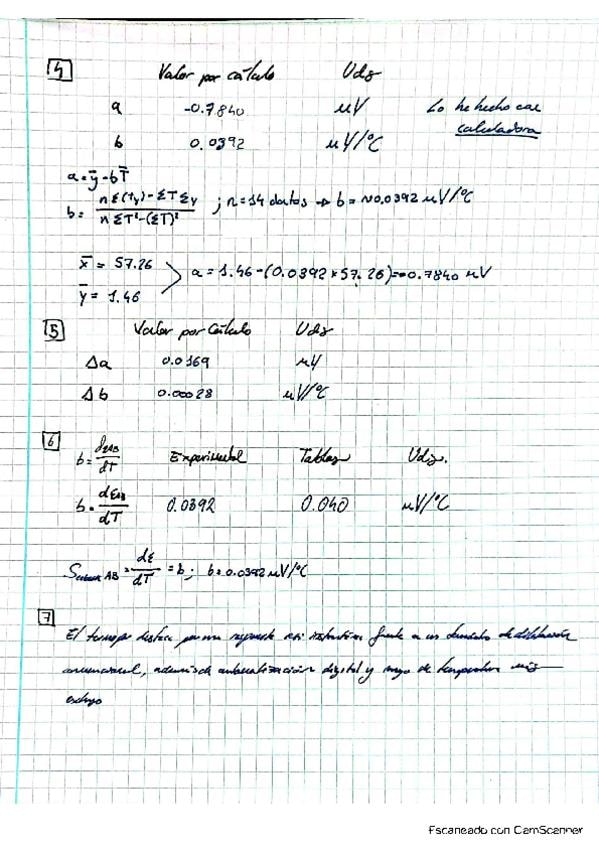 4 Valor por cálculo Uds
a -0.7840 μV Lo he hecho con
b 0.0392 μV/°C calculadora
a = ȳ - bT̄
b = nΣ(Ty) - ΣTΣy / nΣT² - (ΣT)² ; n = 14 datos → b = ~0.0392 μV/°C
x̄ = 57.26
ȳ = 1.46 > a = 1.46 - (0.0392 × 57.26) = -0.7840 μV
5 Valor por Cálculo Uds
Δa 0.0169 μV
Δb 0.00028 μV/°C
6
b = dεAB/dT Experimental Tablas Uds.
b = dεAB/dT 0.0392 0.040 μV/°C
AB = dε/dT = b ; b = 0.0392 μV/°C
7
El destaca por una respuesta casi instantánea frente a un de dilatación
, además de automatización digital y rango de temperatura más
Escaneado con CamScanner